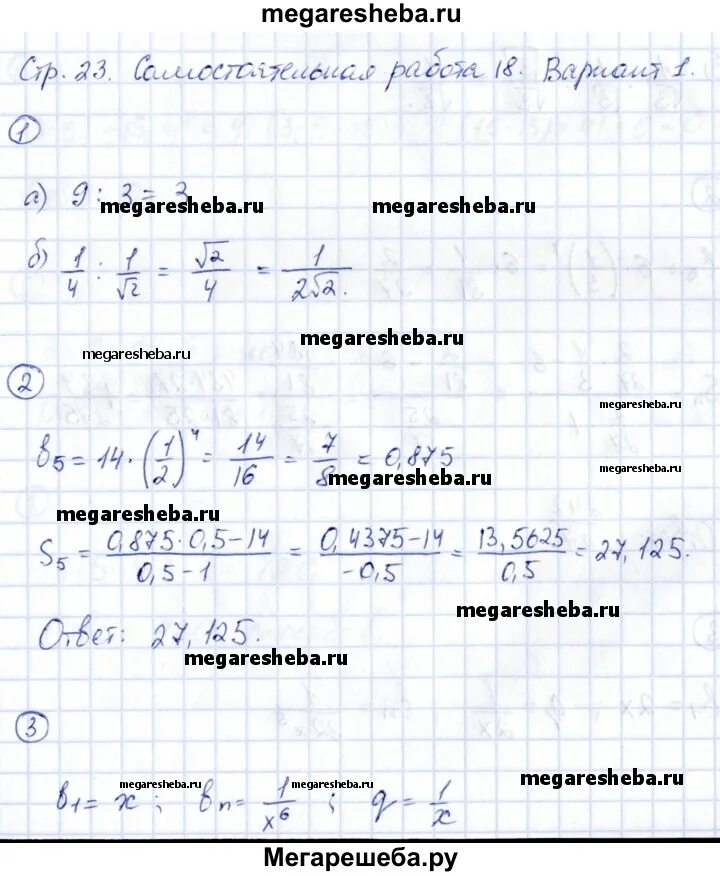 megaresheba.ru
Стр. 23. Самостоятельная работа 18. Вариант 1.
1
а) 9 : 3 = 3
megaresheba.ru megaresheba.ru
б) 1/4 : 1/√2 = √2/4 = 1/2√2.
megaresheba.ru
megaresheba.ru
2
megaresheba.ru
b5 = 14 · (1/2)^4 = 14/16 = 7/8 = 0,875
megaresheba.ru
megaresheba.ru
megaresheba.ru
S5 = 0,875 · 0,5 − 14 / 0,5 − 1 = 0,4375 − 14 / −0,5 = 13,5625 / 0,5 = 27,125.
megaresheba.ru
Ответ: 27,125.
megaresheba.ru
3
megaresheba.ru megaresheba.ru megaresheba.ru
b1 = x ; bn = 1/x^6 ; q = 1/x
Мегарешеба.ру